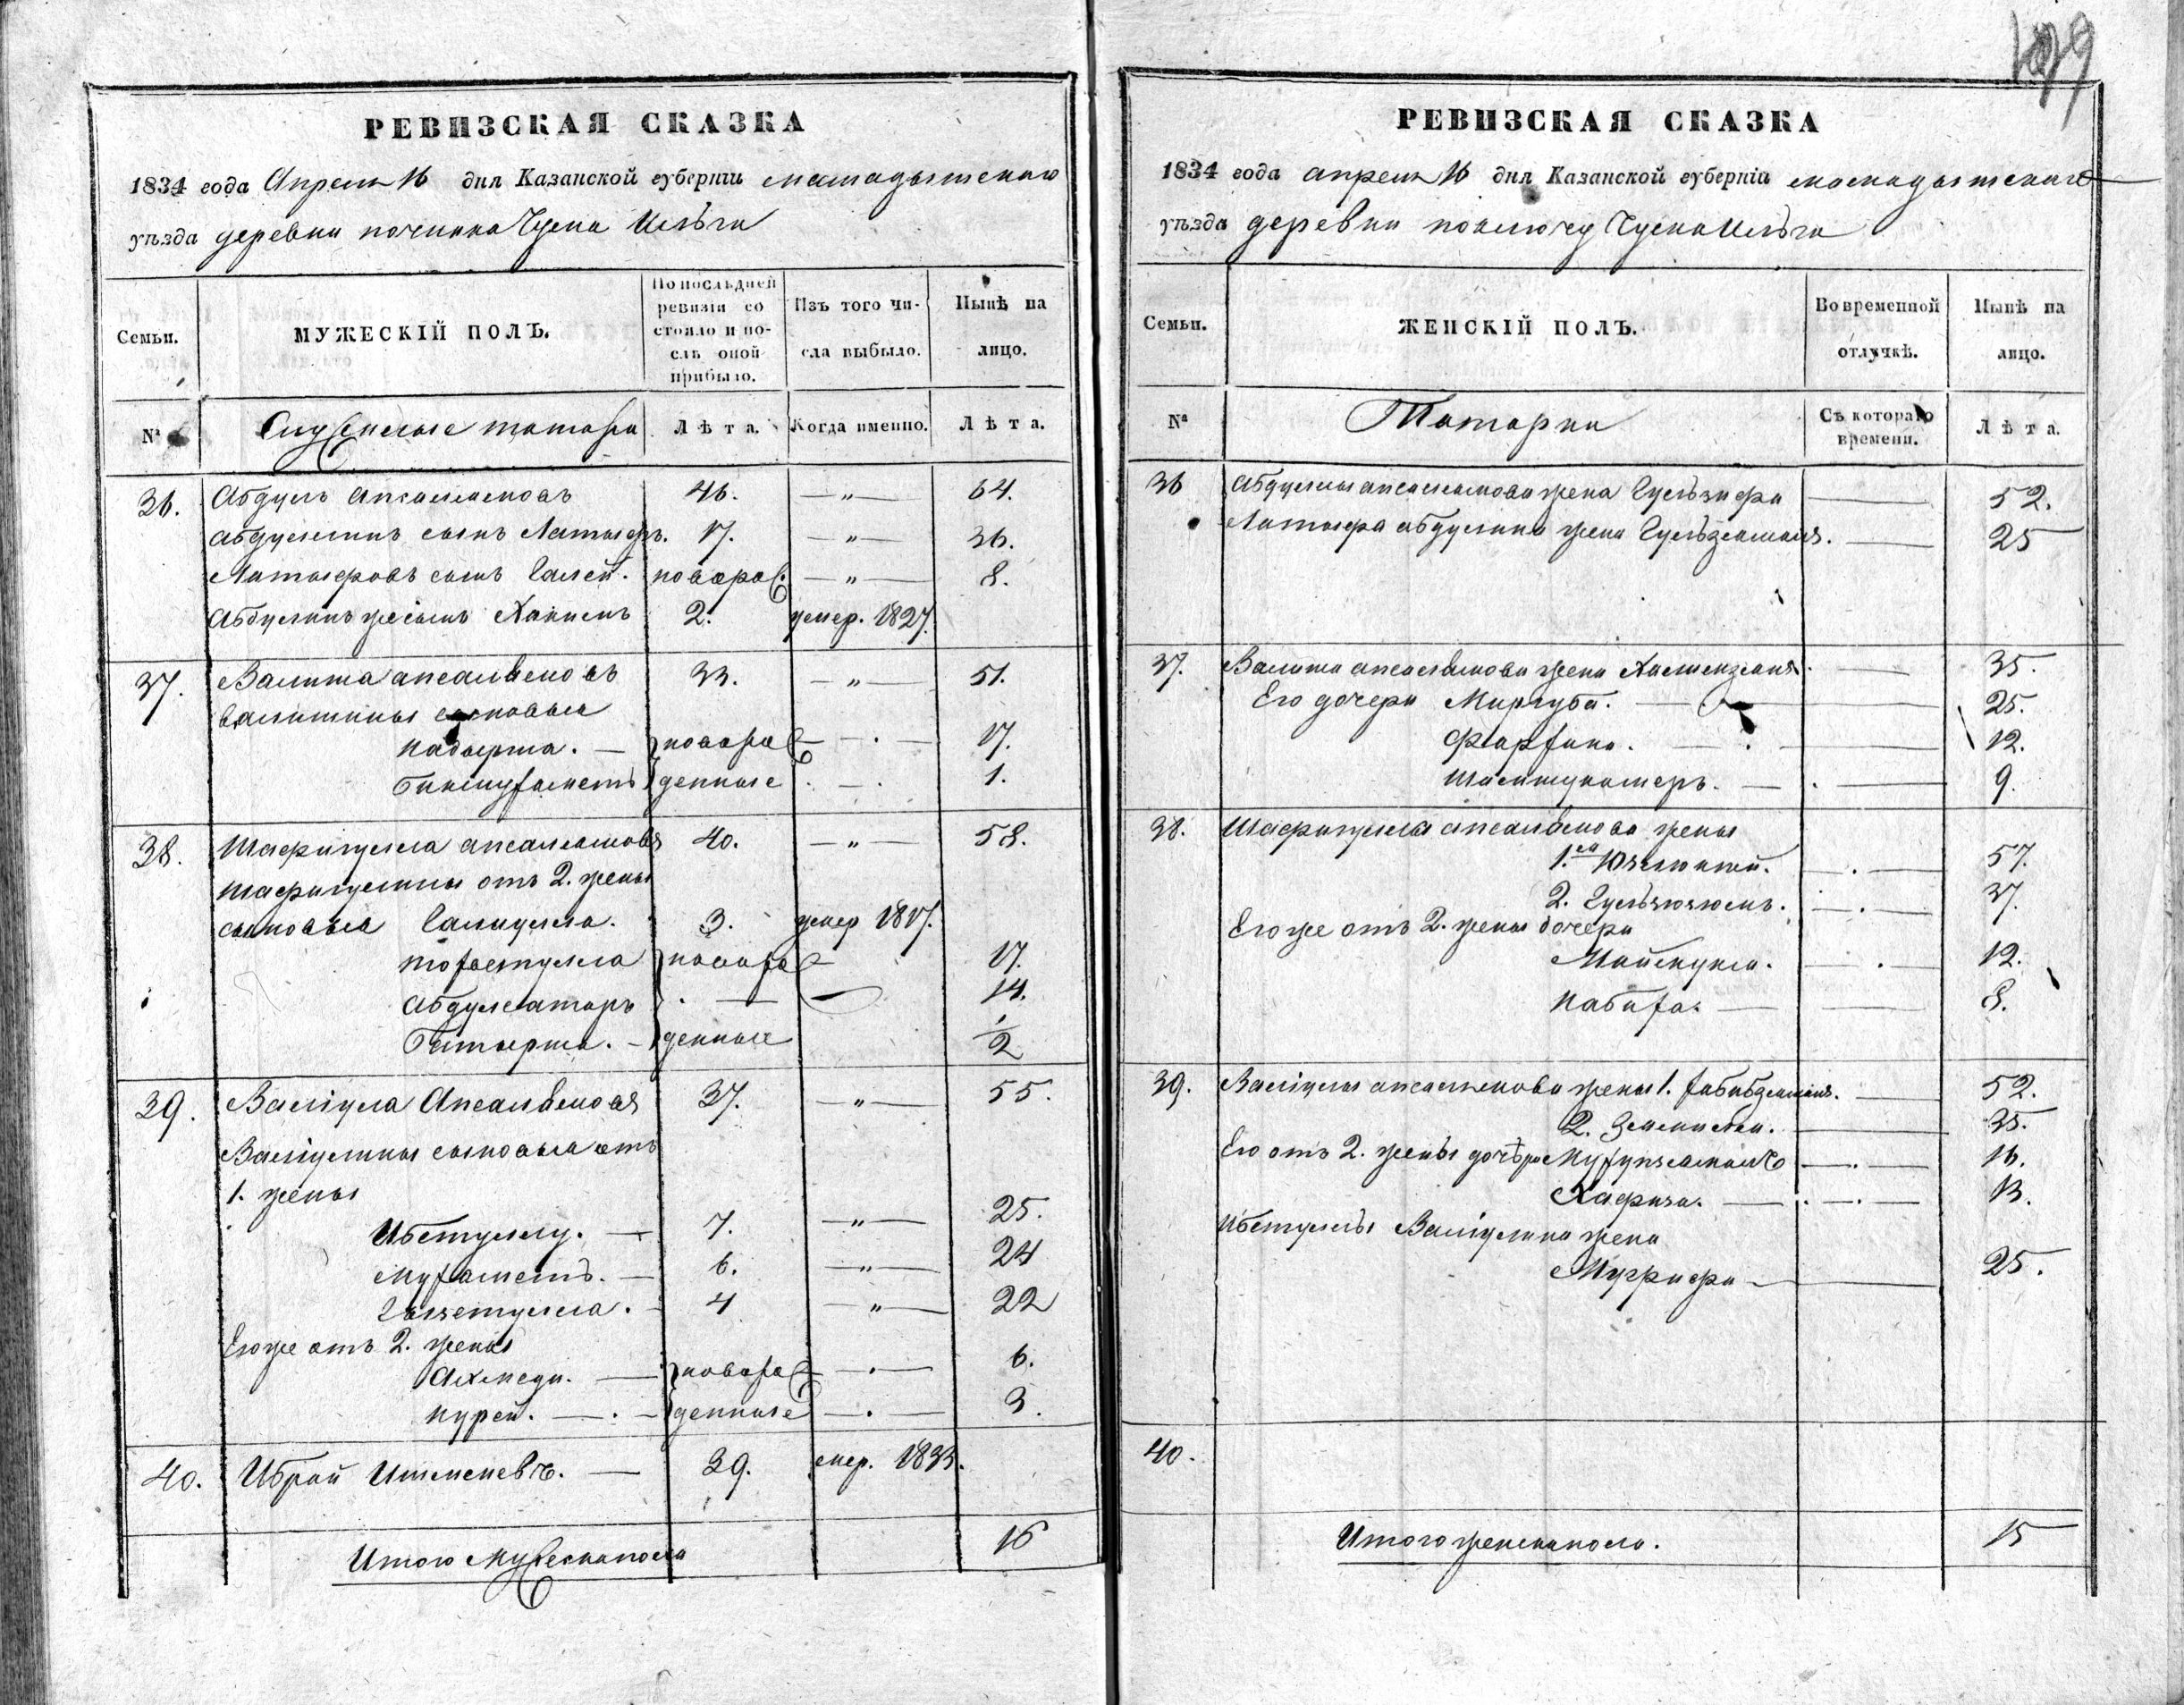 199
РЕВИЗСКАЯ СКАЗКА
1834 года Апреля 16 дня Казанской губерніи мамадышскаго
уѣзда деревни починка Чулпа Ильги
Семьи.
МУЖЕСКІЙ ПОЛЪ.
По послѣдней ревизіи состояло и послѣ оной прибыло.
Изъ того числа выбыло.
Нынѣ на лицо.
№
Служилые татары
Лѣта.
Когда именно.
Лѣта.
36. Абдулъ Апсалямовъ 46. —"— 64.
Абдуллинъ сынъ Латыфъ. 17. —"— 36.
Латыфовъ сынъ Галей. новорож. —"— 8.
Абдулинъ же сынъ Хакимъ 2. умер. 1827.
37. Валиша апсалямовъ 33. —"— 51.
валишины сыновья
Кадырша. — новорож — . — 17.
Бикмухаметъ денные . — . 1.
38. Шафигулла апсалямовъ 40. —"— 58.
Шафигуллины отъ 2. жены
сыновья Галиулла. 3. умер 1817.
Тохфетулла новорож — 17.
Абдулсатаръ . — 14.
Батырша. — денные 1/2
39. Валіула Апсалямовъ 37. —"— 55.
Валіулины сыновья отъ
1. жены
Ибетуллу. — 7. —"— 25.
Мухаметъ. — 6. —"— 24
Гиззетулла. 4 —"— 22
Его же отъ 2. жены
Ахмеди. — новорож — . — 6.
Курей. — . — денные — . — 3.
40. Ибрай Ишменевъ. — 39. умер. 1833.
Итого мужеска пола 16
РЕВИЗСКАЯ СКАЗКА
1834 года апреля 16 дня Казанской губерніи мамадышскаго
уѣзда деревни по ключу Чулпа Ильги
Семьи.
ЖЕНСКІЙ ПОЛЪ.
Во временной отлучкѣ.
Нынѣ на лицо.
№
Татарки
Съ котораго времени.
Лѣта.
36 Абдуллы апсалямова жена Гульзифа — 52.
Латыфа абдулина жена Гульзямалъ. — 25
37. Валиши апсалямова жена Хамизямалъ. — 35.
Его дочери Миргуба. — 25.
Фархина. — . — 12.
Шамшукамеръ. — . — 9.
38. Шафигуллы апсалямова жены
1.ая Юзлюкей. — . — 57.
2. Гульзюзюмъ. — . — 37.
Его же отъ 2. жены дочери
Маймуна. — . — 12.
Кабира. — 8.
39. Валіулы апсалямова жены 1. Хабибзямалъ. — 52.
2. Земинеби. — 35.
Его отъ 2. жены дочѣри Мухупзямалъ — . — 16.
Хафиза. — . — . — 13.
Ибетуллы Валіулина жена
Мугрифа — 25.
40.
Итого женска пола. 15